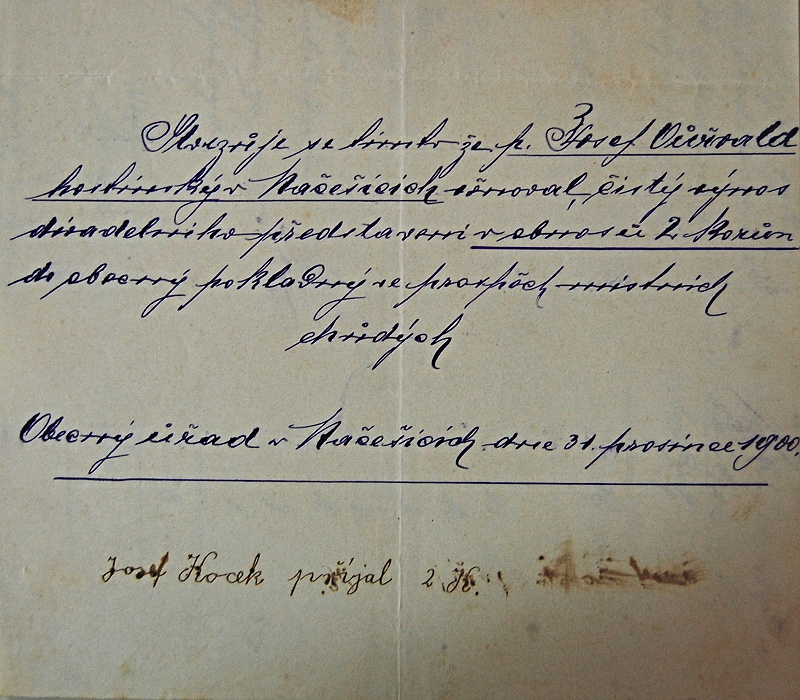 Stvrzuje se tímto že p. Josef
hostinský v Načešicích věnoval, čistý výnos
divadelního představení v obnosu 2 Korun
do obecný pokladny ve prospěch místních
chudých
Obecný úřad v Načešicích dne 31. prosince 1900.
Josef Kocek přijal 2 K.